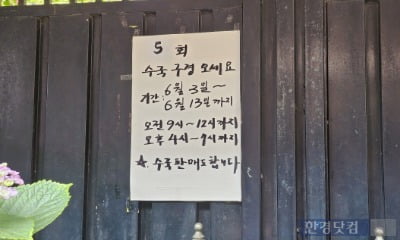 5회
수국 구경 오세요
기간: 6월 3일~
6월 13일까지
오전 9시~12시까지
오후 4시~9시까지
★. 수국판매도합니다
한경닷컴